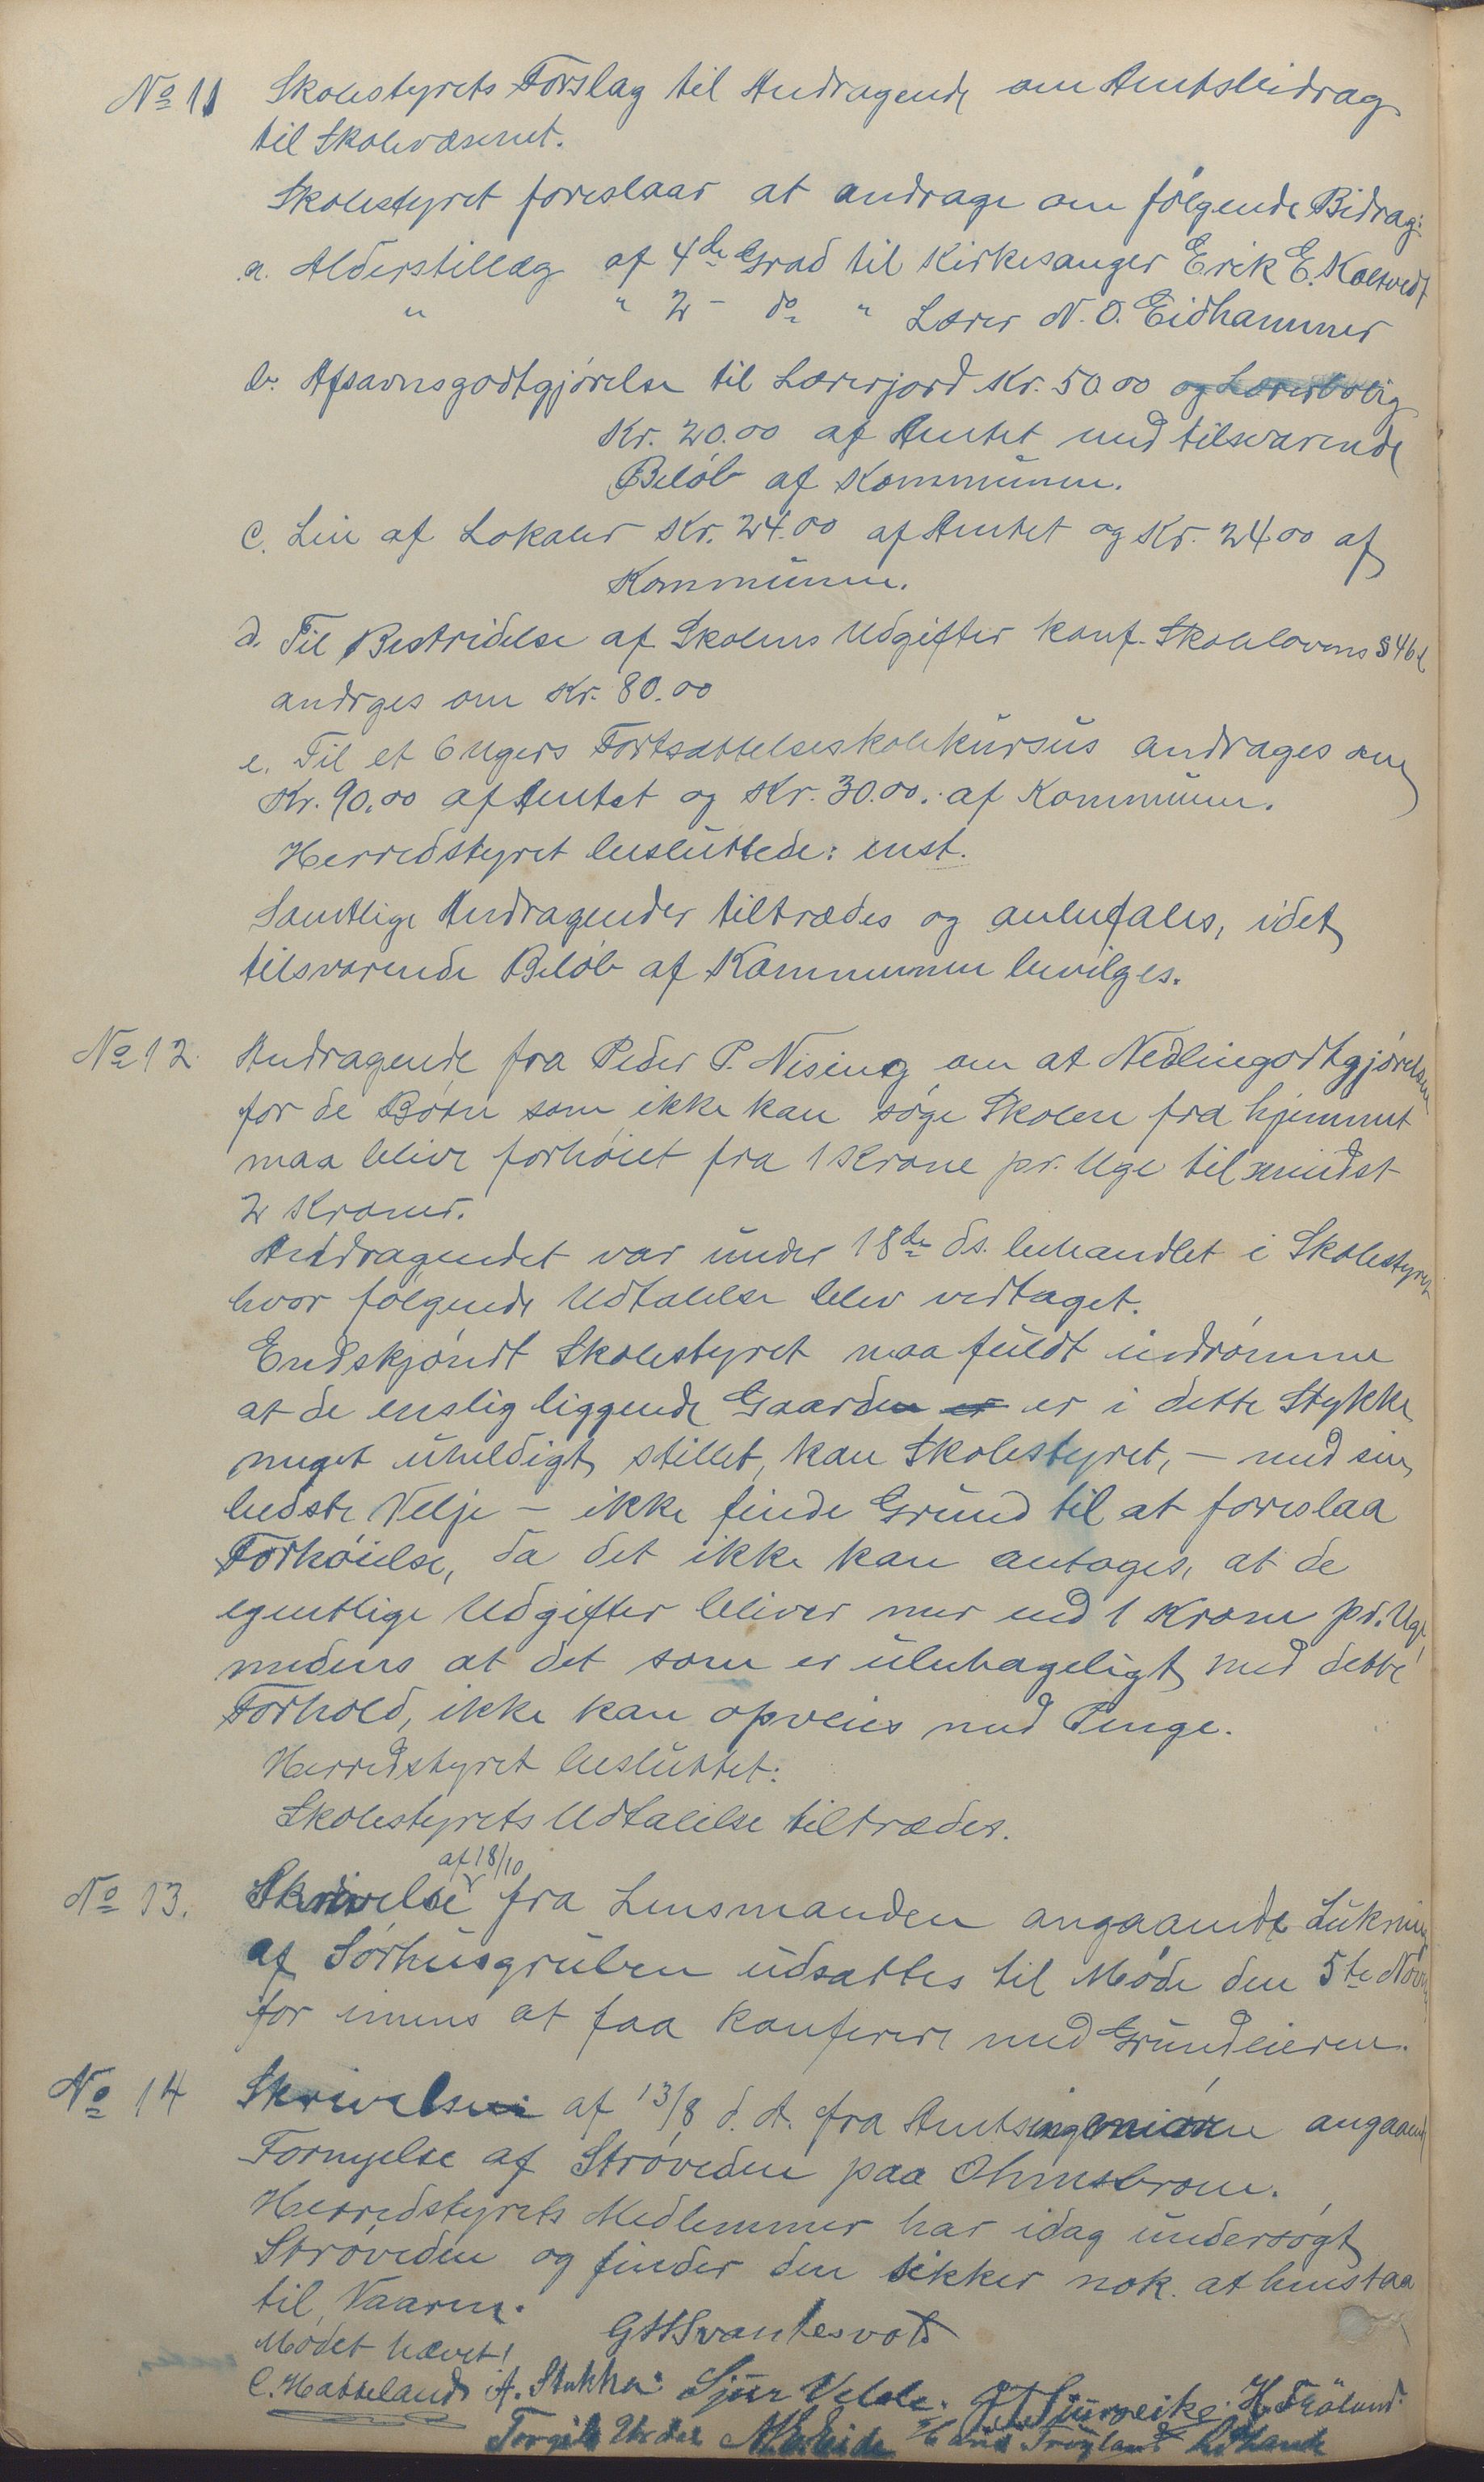 No 11 Skolestyrets Forslag til Andragende om Amtsbidrag
til Skolevæsenet.
Skolestyret foreslaar at andrage om følgende Bidrag:
a. Alderstillæg af 4de Grad til Kirkesanger Erik E.
" " 2 - do " Lærer N. O. Eidhammer
b. Afsavnsgodtgjørelse til Lærerjord Kr. 50.00 og Lærerbolig
Kr. 20.00 af Amtet med tilsvarende
Beløb af Kommunen.
c. Leie af Lokaler Kr. 24.00 af Amtet og Kr. 24.00 af
Kommunen.
d. Til Bestridelse af Skolens Udgifter konf. Skolelovens § 46
andrges om Kr. 80.00
e. Til et 6 Ugers Fortsættelseskolekursus andrages om
Kr. 90.00 af Amtet og Kr. 30.00. af Kommunen.
Herredstyret besluttede: enst.
Samtlige Andragender tiltrædes og anbefales, idet
tilsvarende Beløb af Kommunen bevilges.
No 12. Andragende fra Peder P. Nising om at Nedlingodtgjørelsen
for de Børn som ikke kan søge Skolen fra hjemmet
maa blive forhøiet fra 1 Krone pr. Uge til mindst
2 Kroner.
Andragendet var under 18de ds. behandlet i Skolestyret
hvor følgende Udtalelse blev vedtaget.
Endskjøndt Skolestyret maa fuldt indrømme
at de enslig liggende Gaarden er er i dette Stykke
meget uheldigt stillet, kan Skolestyret, - med sin
bedste Velje - ikke finde Grund til at foreslaa
Forhøielse, da det ikke kan antages, at de
egentlige Udgifter bliver mer end 1 Krone pr. Uge,
medens at det som er ubehageligt med dette
Forhold, ikke kan opveies med Penge.
Herredstyret besluttet:
Skolestyrets Udtalelse tiltrædes.
af 18/10
No 13. Skrivelse fra Lensmanden angaaende Lukning
af Sørhusgruben udsættes til Møde den 5te Novbr
for imens at faa konferere med Grundeieren.
No 14 Skrivelsen af 13/8 d. A. fra Amtsingeniøren angaaende
Fornyelse af Strøveden paa Ohmsbroen.
Herredstyrets Medlemmer har idag undersøgt
Strøveden og finder den sikker nok at henstaa
til Vaaren.
Mødet hævet! G H Svantesvold
C. Hatteland A. Stakka Sjur Velde. H. Frølund
Torgils A. Eide Hans Trøyland